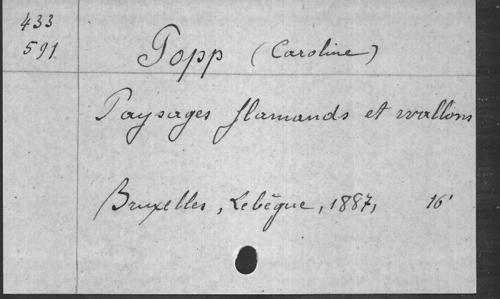 433
591
Popp (Caroline)
Paysages flamands et wallons
Bruxelles, Lebègue, 1887, 16°